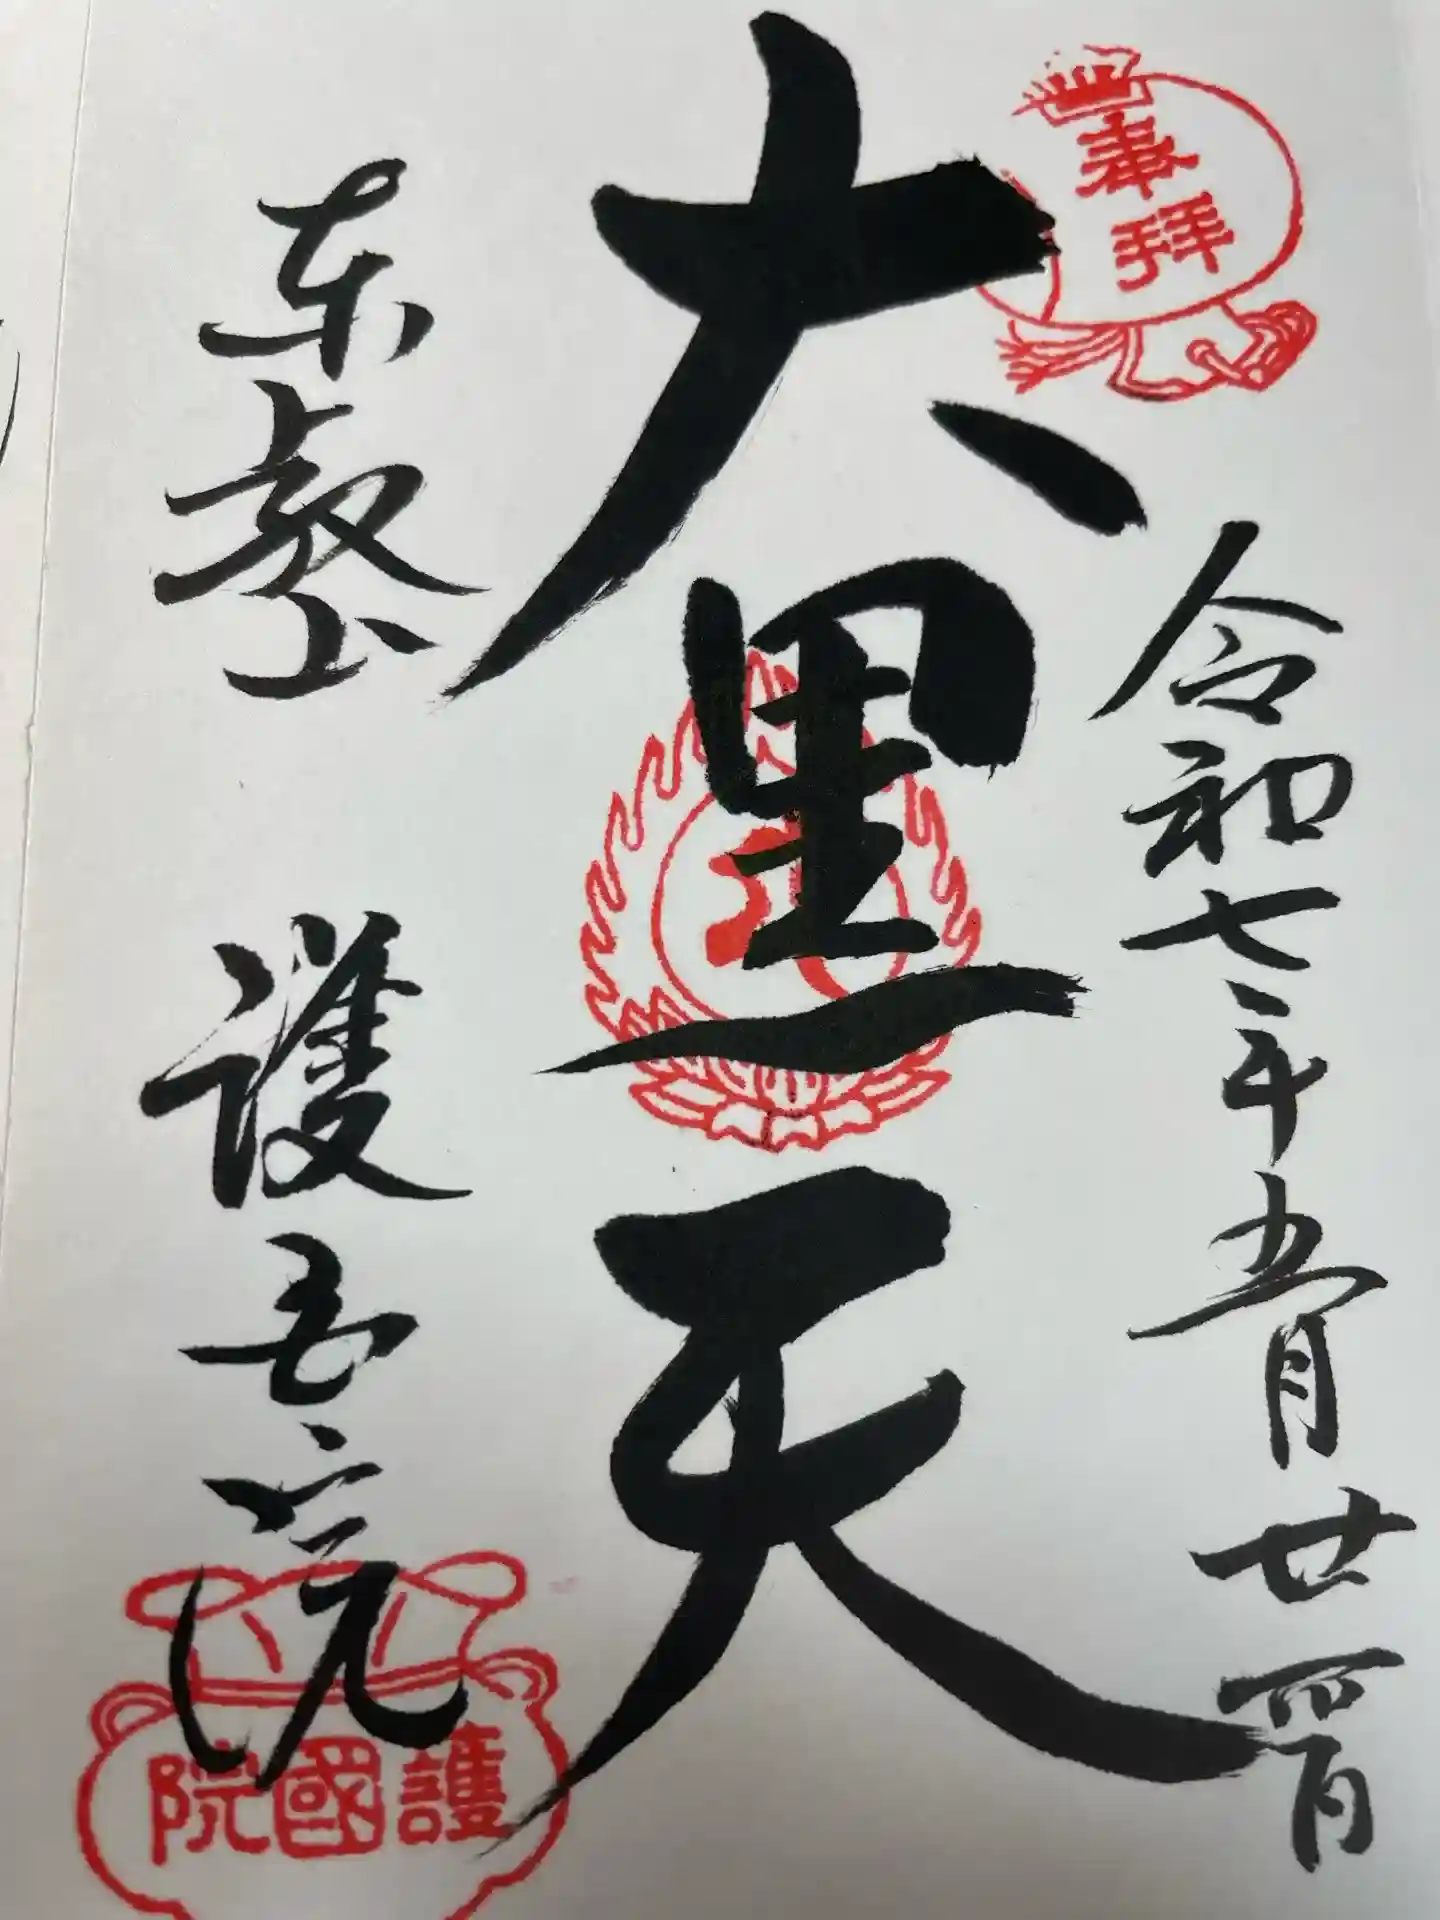 奉拝
令和七年五月廿四日
大黒天
東叡山 護国院
護國院